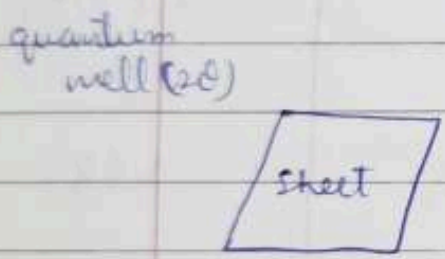 quantum
well (2d)
Sheet